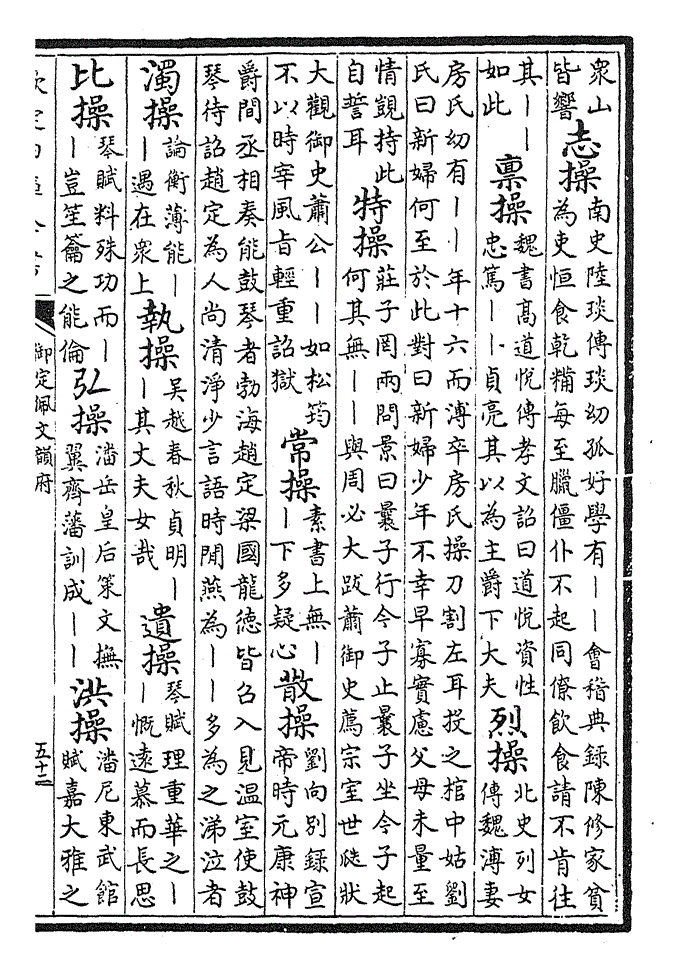 衆山皆響志操南史陸琰傳琰幼孤好學有——會稽典錄陳修家貧為吏恒食乾糒每至臘僵仆不起同僚飲食請不肯往
其——如此禀操魏書髙道悅傳孝文詔曰道悅資性忠篤——貞亮其以為主爵下大夫烈操北史列女傳魏溥妻
房氏幼有——年十六而溥卒房氏操刀割左耳投之棺中姑劉氏曰新婦何至於此對曰新婦少年不幸早寡實慮父母未量至
情覬持此自誓耳特操莊子罔兩問景曰曩子行今子止曩子坐今子起何其無——與周必大跋蕭御史薦宗室世狀
大觀御史蕭公——如松筠不以時宰風旨輕重詔獄常操素書上無——下多疑心散操劉向別録宣帝時元康神
爵間丞相奏能鼓琴者勃海趙定梁國龍德皆召入見溫室使鼓琴待詔趙定為人尚清淨少言語時閒燕為——多為之涕泣者
濁操論衡薄能——遇在衆上執操吳越春秋貞明——其丈夫女哉遺操琴賦理重華之——慨遠慕而長思
比操琴賦料殊功而——豈笙籥之能倫弘操潘岳皇后策文撫翼齊藩訓成——洪操潘尼東武館賦嘉大雅之
欽定四庫全書
御定佩文韻府
五十二